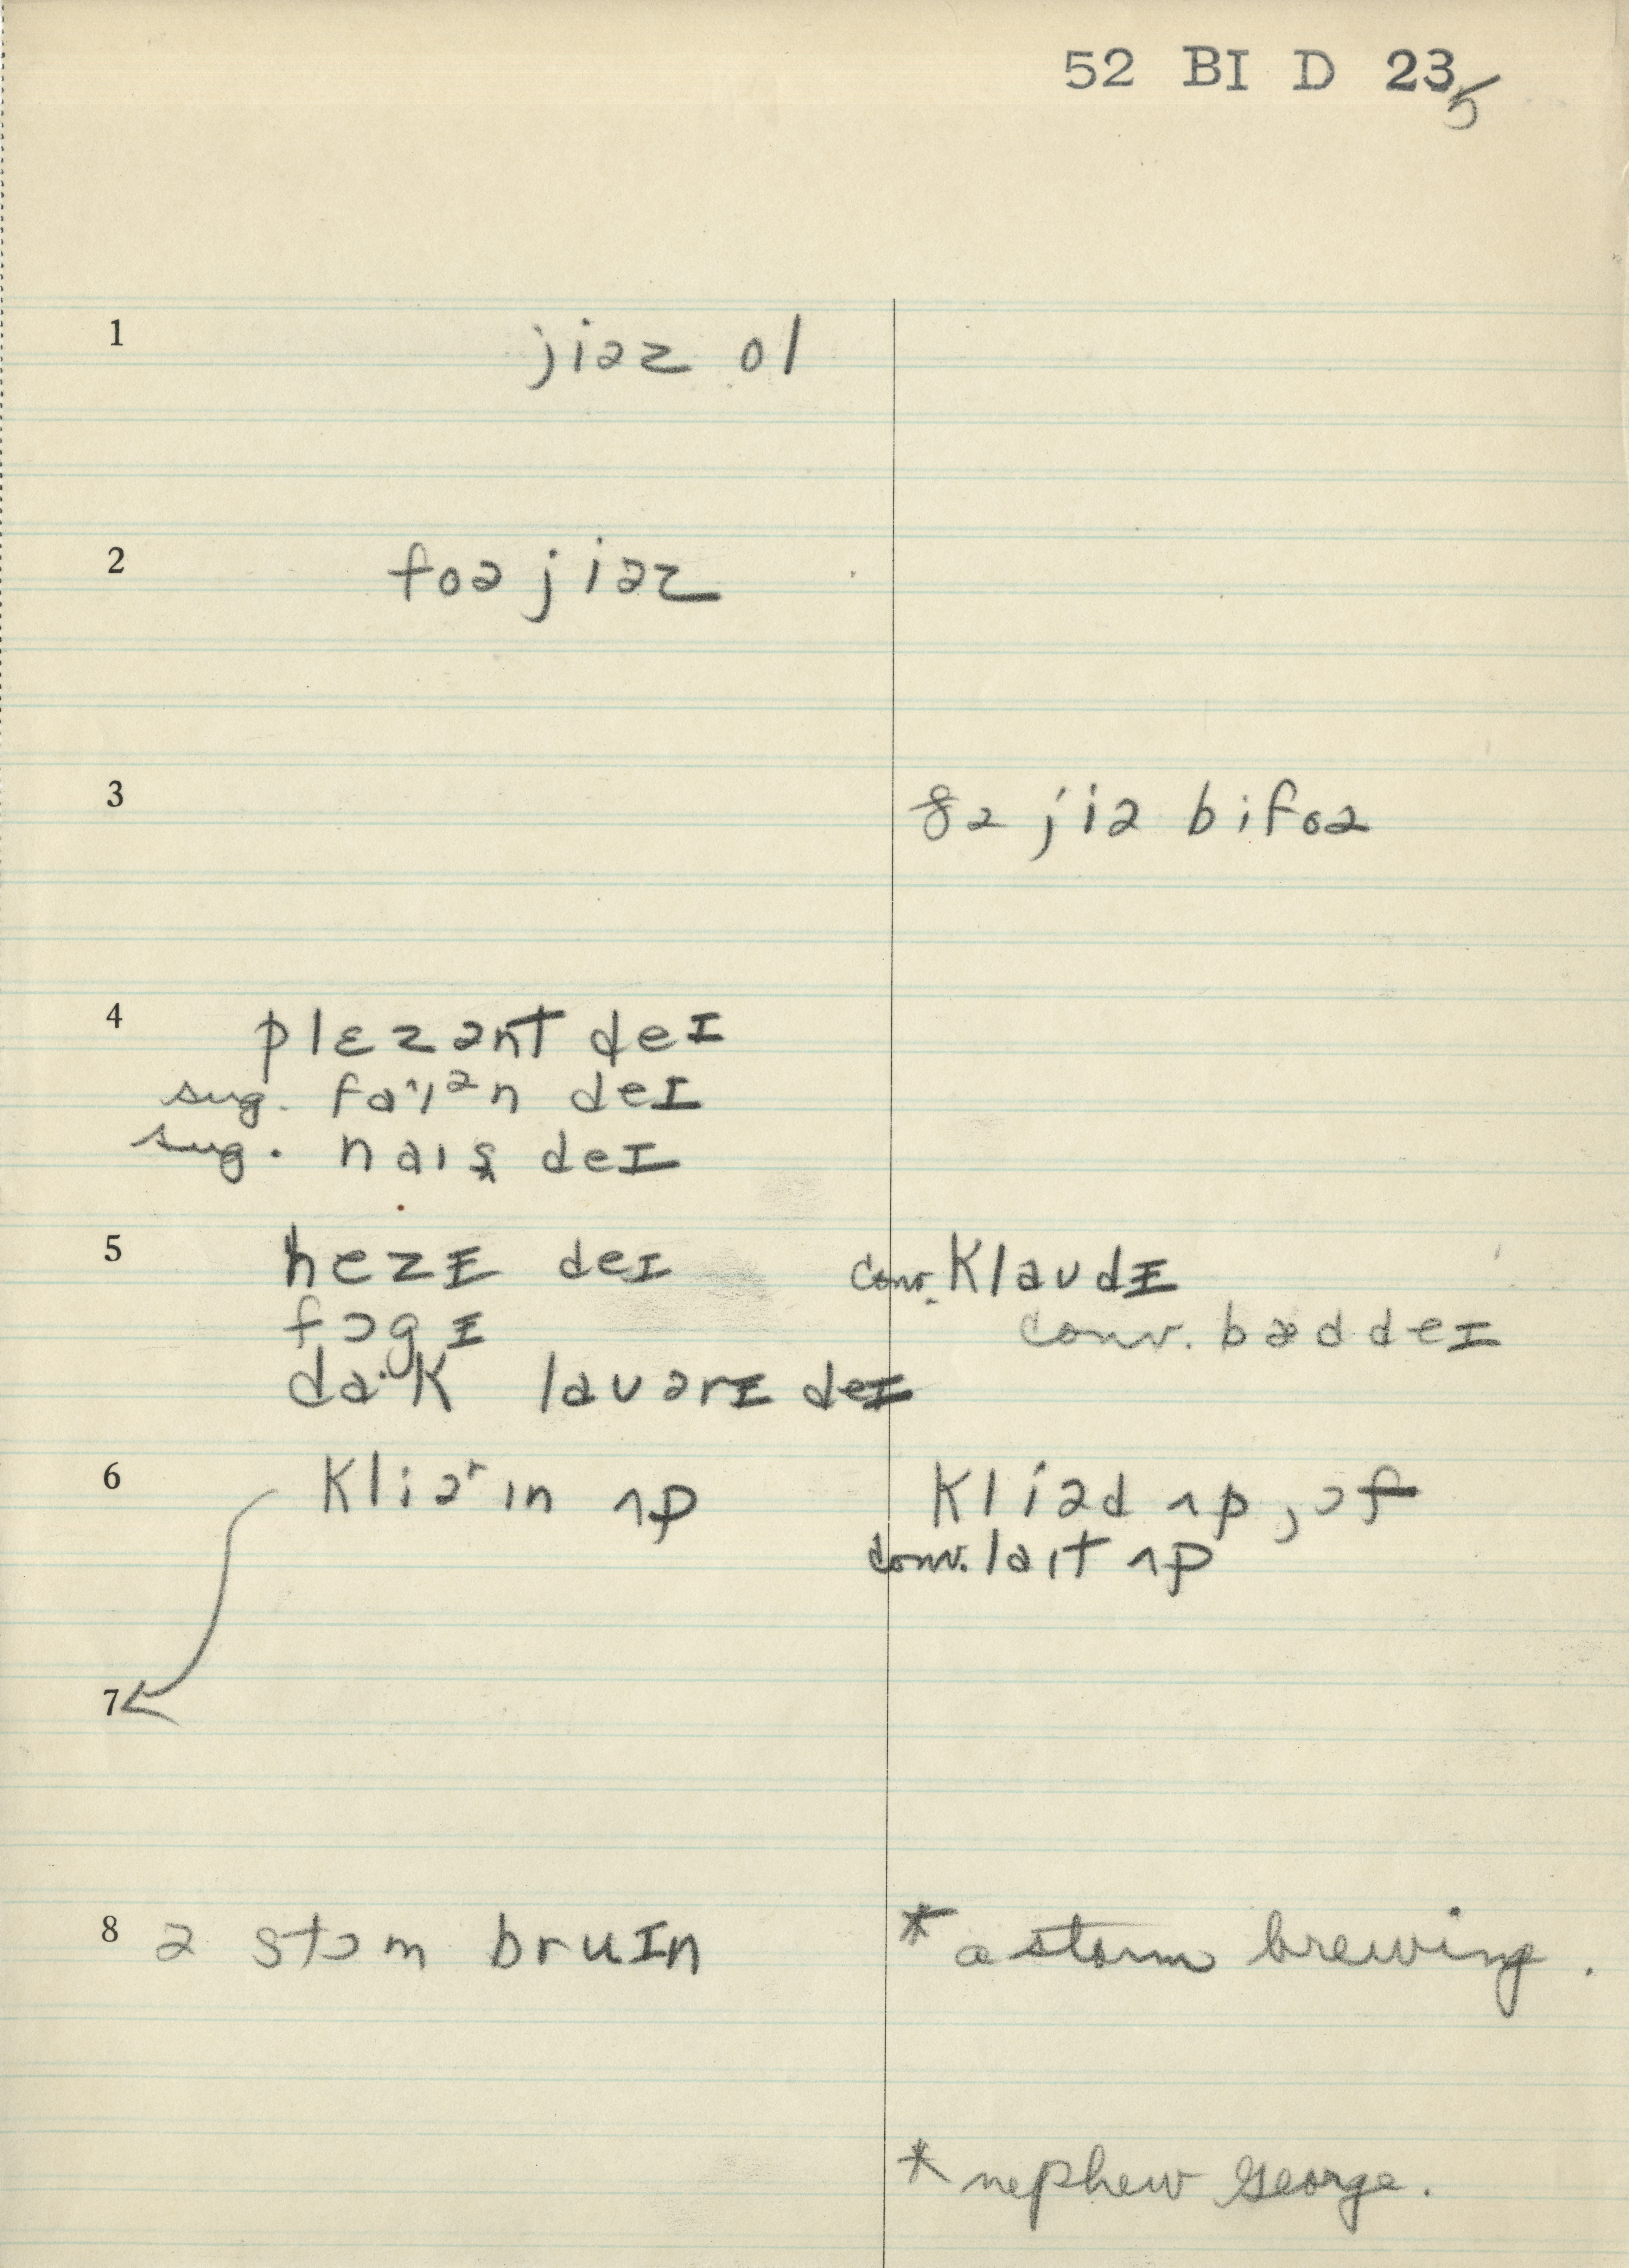 52 BI D 235
1 jiəz ol
2 foə jiəz
3 ðə jiə bifoə
4 plɛzənt deɪ
sug. fa·ɪən deɪ
sug. naɪs deɪ
5 hezɪ deɪ conv. klaudɪ
fɔgɪ conv. bæd deɪ
da·k lauərɪ deɪ
6 kliəʳɪn ʌp kliəd ʌp, ɔf
conv. laɪt ʌp
7
8 ə stɔm bruɪn * a storm brewing.
* nephew George.